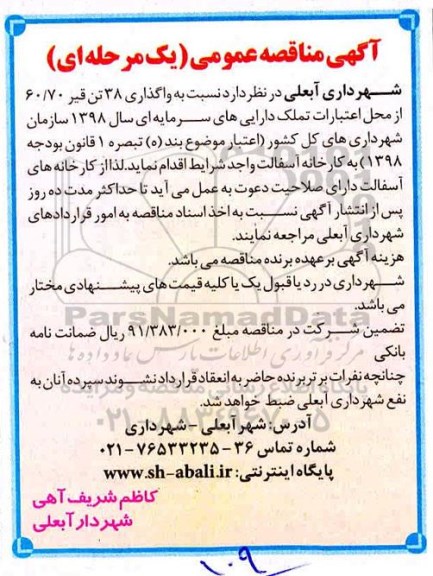 آگهی مناقصه عمومی (یک مرحله ای)
شهرداری آبعلی در نظر دارد نسبت به واگذاری ۳۸ تن قیر ۶۰/۷۰
از محل اعتبارات تملک دارایی های سرمایه ای سال ۱۳۹۸ سازمان
شهرداری های کل کشور (اعتبار موضوع بند (ه) تبصره ۱ قانون بودجه
۱۳۹۸) به کارخانه آسفالت واجد شرایط اقدام نماید. لذا از کارخانه های
آسفالت دارای صلاحیت دعوت به عمل می آید تا حداکثر مدت ده روز
پس از انتشار آگهی نسبت به اخذ اسناد مناقصه به امور قراردادهای
شهرداری آبعلی مراجعه نمایند.
هزینه آگهی بر عهده برنده مناقصه می باشد.
شهرداری در رد یا قبول یک یا کلیه قیمت های پیشنهادی مختار
می باشد.
تضمین شرکت در مناقصه مبلغ ۹۱/۳۸۳/۰۰۰ ریال ضمانت نامه
بانکی
چنانچه نفرات برتر برنده حاضر به انعقاد قرارداد نشوند سپرده آنان به
نفع شهرداری آبعلی ضبط خواهد شد.
آدرس: شهر آبعلی - شهرداری
شماره تماس ۳۶-۷۶۵۳۳۲۳۵-۰۲۱
پایگاه اینترنتی: www.sh-abali.ir
کاظم شریف آهی
شهردار آبعلی
ParsNamadData
۱۰۹